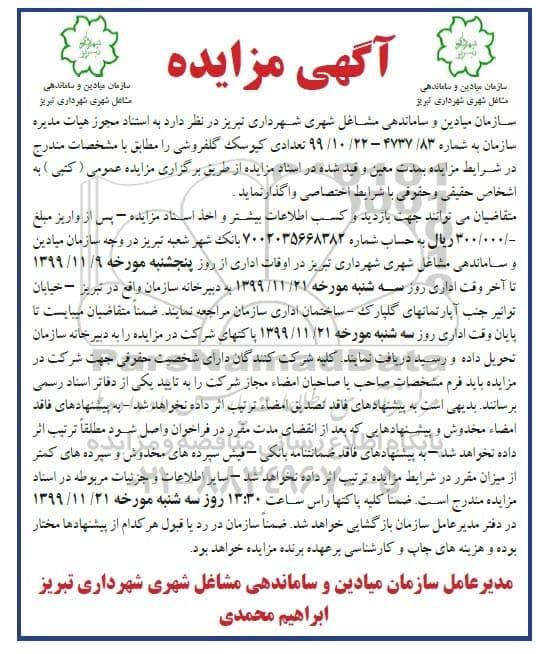 آگهی مزایده
سازمان میادین و ساماندهی
مشاغل شهری شهرداری تبریز
سازمان میادین و ساماندهی
مشاغل شهری شهرداری تبریز
سازمان میادین و ساماندهی مشاغل شهری شهرداری تبریز در نظر دارد به استناد مجوز هیات مدیره
سازمان به شماره ۴۷۳۷/۸۳ – ۹۹/۱۰/۲۲ تعدادی کیوسک گلفروشی را مطابق با مشخصات مندرج
در شرایط مزایده بمدت معین و قید شده در اسناد مزایده از طریق برگزاری مزایده عمومی ( کتبی ) به
اشخاص حقیقی وحقوقی با شرایط اختصاصی واگذارنماید .
متقاضیان می توانند جهت بازدید و کسب اطلاعات بیشتر و اخذ اسناد مزایده – پس از واریز مبلغ
-/۳۰۰/۰۰۰ ریال به حساب شماره ۷۰۰۲۰۳۵۶۶۸۳۸۲ بانک شهر شعبه تبریز در وجه سازمان میادین
و ساماندهی مشاغل شهری شهرداری تبریز در اوقات اداری از روز پنجشنبه مورخه ۱۳۹۹/۱۱/۹
تا آخر وقت اداری روز سه شنبه مورخه ۱۳۹۹/۱۱/۲۱ به دبیرخانه سازمان واقع در تبریز – خیابان
توانیر جنب آپارتمانهای گلپارک - ساختمان اداری سازمان مراجعه نمایند. ضمناً متقاضیان میبایست تا
پایان وقت اداری روز سه شنبه مورخه ۱۳۹۹/۱۱/۲۱ پاکتهای شرکت در مزایده را به دبیرخانه سازمان
تحویل داده و رسید دریافت نمایند. کلیه شرکت کنندگان دارای شخصیت حقوقی جهت شرکت در
مزایده باید فرم مشخصات صاحب یا صاحبان امضاء مجاز شرکت را به تایید یکی از دفاتر اسناد رسمی
برسانند. بدیهی است به پیشنهادهای فاقد تصدیق امضاء ترتیب اثر داده نخواهد شد – به پیشنهادهای فاقد
امضاء مخدوش و پیشنهادهایی که بعد از انقضای مدت مقرر در فراخوان واصل شود مطلقاً ترتیب اثر
داده نخواهد شد – به پیشنهادهای فاقد ضمانتنامه بانکی – فیش سپرده های مخدوش و سپرده های کمتر
از میزان مقرر در شرایط مزایده ترتیب اثر داده نخواهد شد – سایر اطلاعات و جزئیات مربوطه در اسناد
مزایده مندرج است. ضمناً کلیه پاکتها راس ساعت ۱۳:۳۰ روز سه شنبه مورخه ۱۳۹۹/۱۱/۲۱
در دفتر مدیرعامل سازمان بازگشایی خواهد شد. ضمناً سازمان در رد یا قبول هرکدام از پیشنهادها مختار
بوده و هزینه های چاپ و کارشناسی برعهده برنده مزایده خواهد بود.
مدیرعامل سازمان میادین و ساماندهی مشاغل شهری شهرداری تبریز
ابراهیم محمدی
پایگاه اطلاع رسانی مناقصه و مزایده
۰۲۱-۸۸۳۴۹۶۷۰-۵